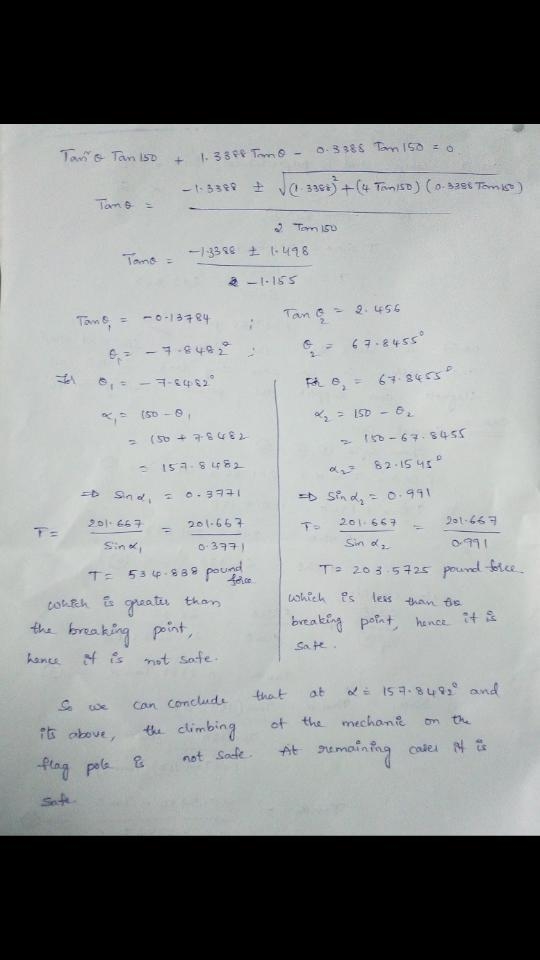 Tan²θ Tan150 + 1.3388 Tanθ - 0.3388 Tan150 = 0
Tanθ = (-1.3388 ± √((1.3388)² + (4 Tan150)(0.3388 Tan150))) / 2 Tan150
Tanθ = (-1.3388 ± 1.498) / -1.155
Tanθ₁ = -0.13784 ; Tanθ₂ = 2.456
θ₁ = -7.8482° ; θ₂ = 67.8455°
For θ₁ = -7.8482°
α₁ = 150 - θ₁
= 150 + 7.8482
= 157.8482
⇒ Sinα₁ = 0.3771
T = 201.667 / Sinα₁ = 201.667 / 0.3771
T = 534.838 pound force
which is greater than
the breaking point,
hence it is not safe.
For θ₂ = 67.8455°
α₂ = 150 - θ₂
= 150 - 67.8455
α₂ = 82.1545°
⇒ Sinα₂ = 0.991
T = 201.667 / Sinα₂ = 201.667 / 0.991
T = 203.5725 pound force
which is less than the
breaking point, hence it is
safe.
So we can conclude that at α = 157.8482° and
its above, the climbing of the mechanic on the
flag pole is not safe. At remaining cases it is
safe.